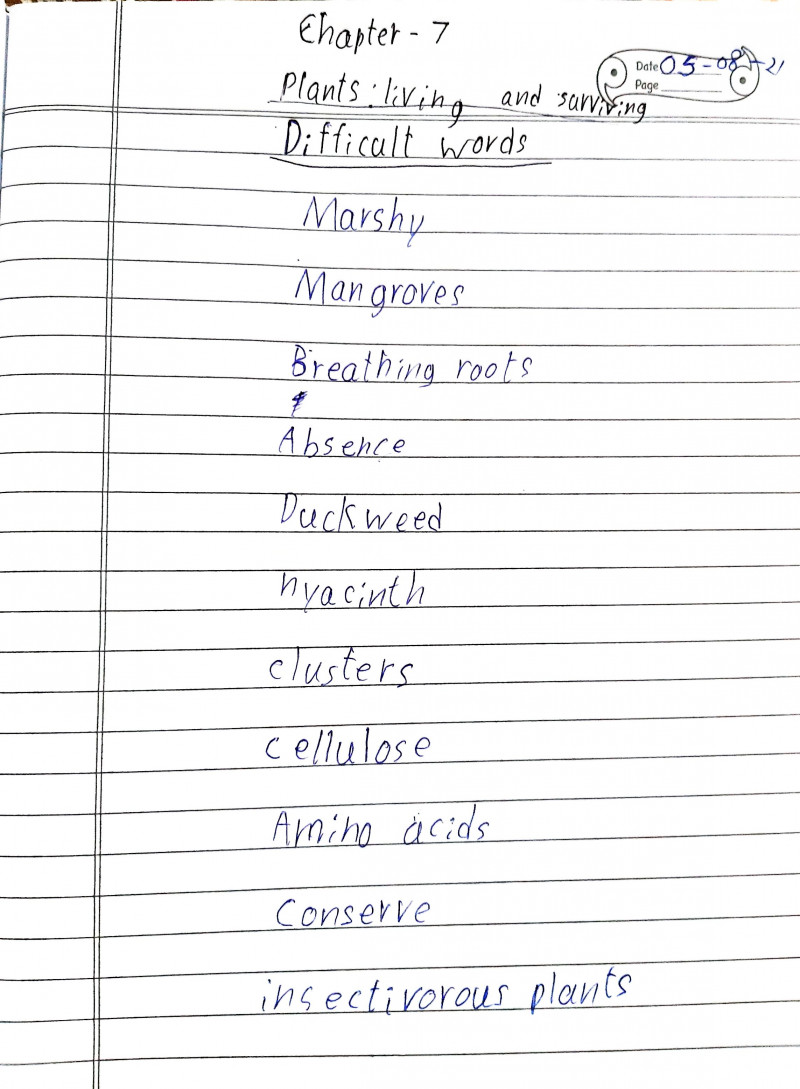 Chapter - 7
Date 05-08-21
Page
Plants : living and surviving
Difficult words
Marshy
Mangroves
Breathing roots
Absence
Duckweed
hyacinth
clusters
cellulose
Amino acids
Conserve
insectivorous plants